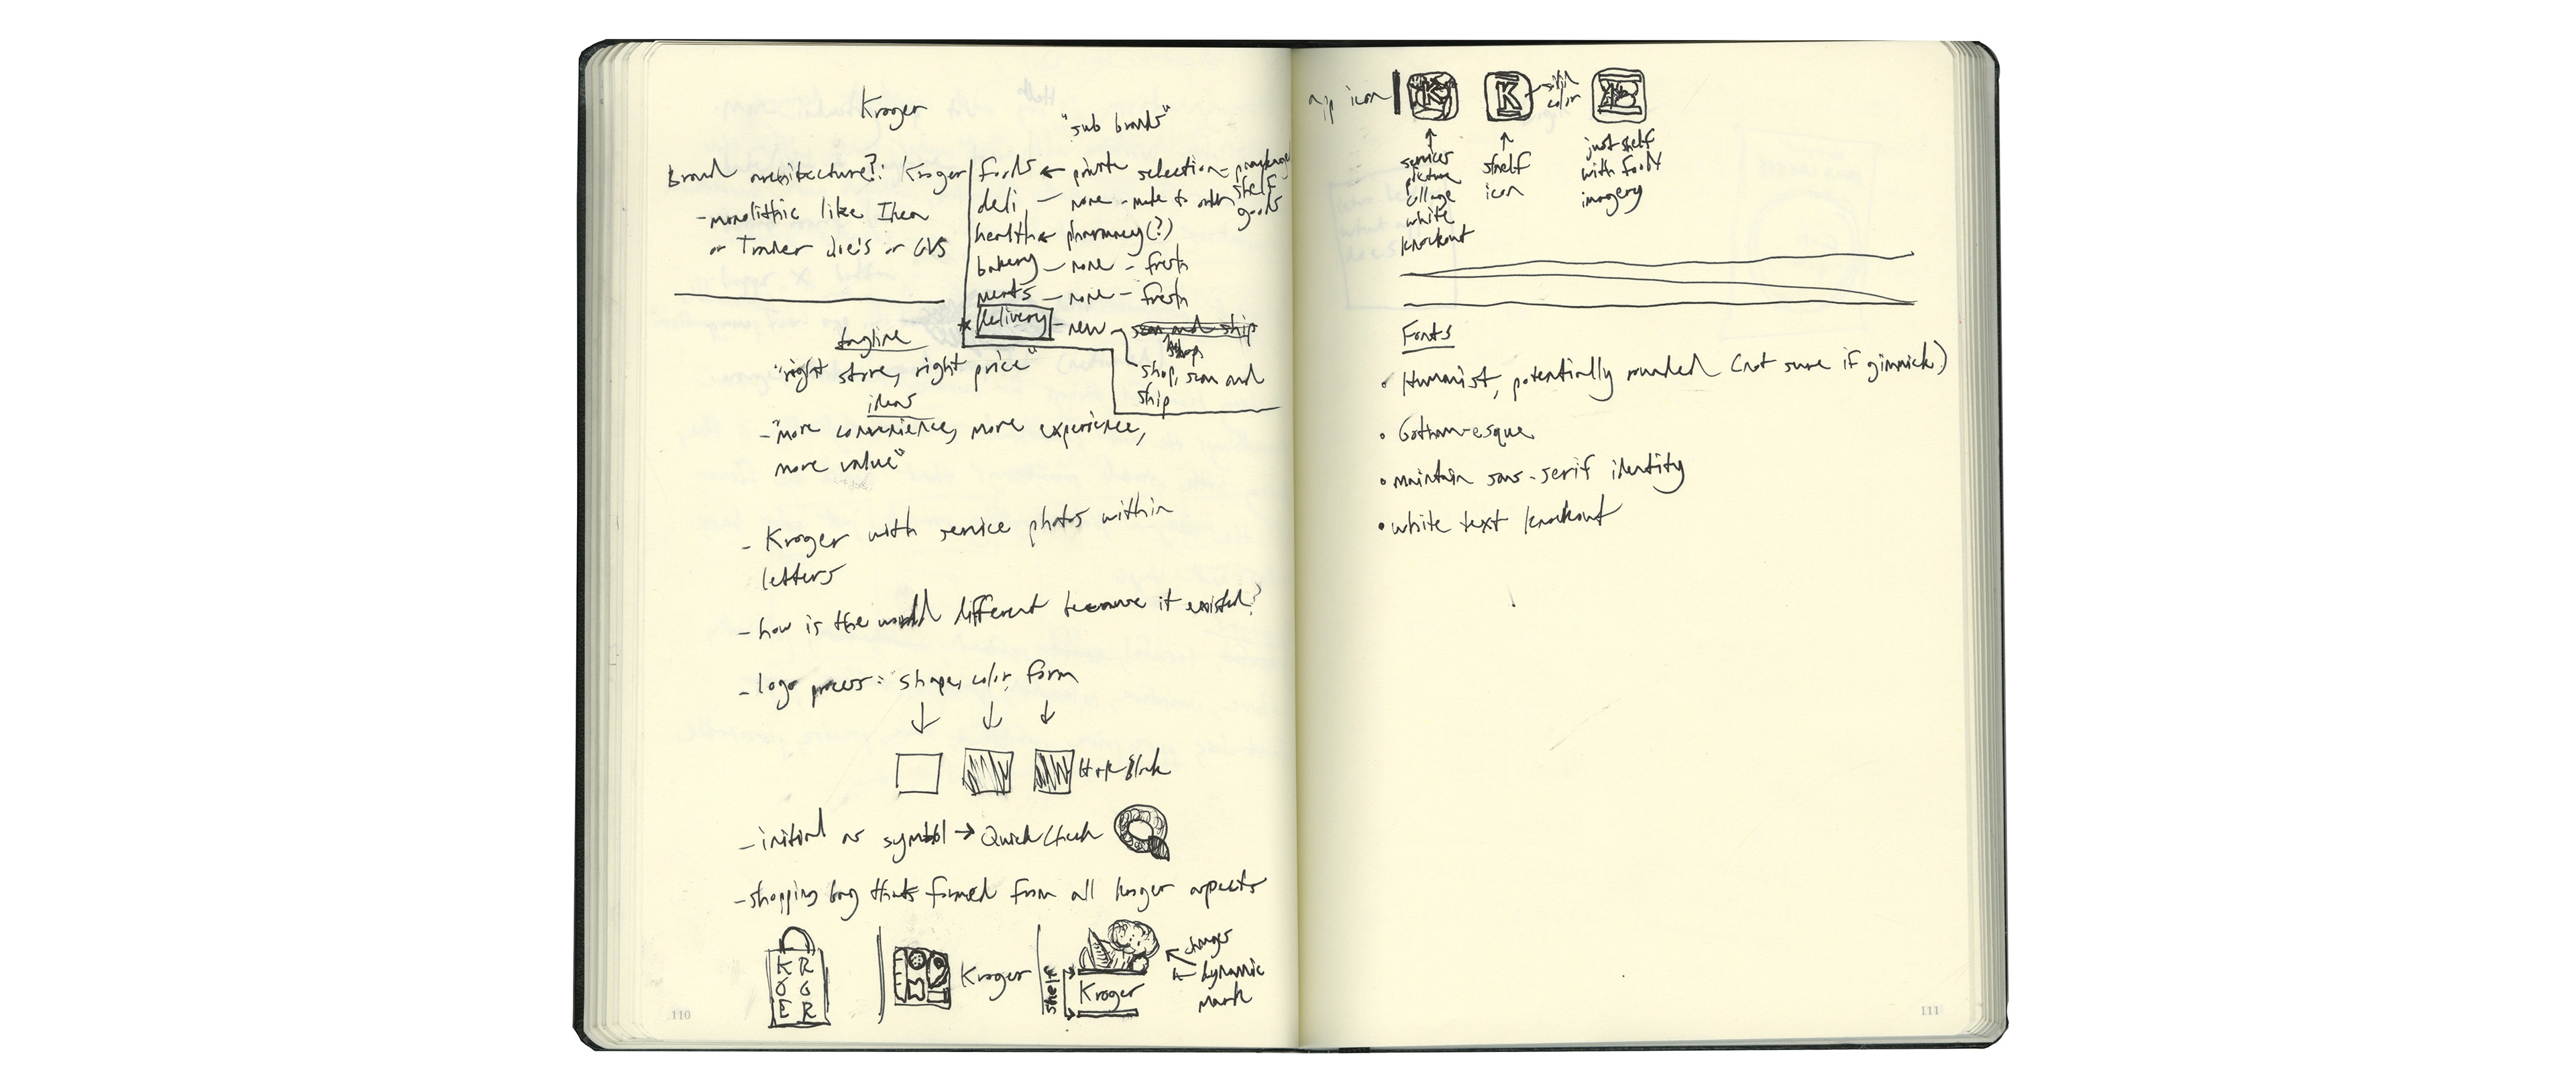 Kroger
"sub brands"
Brand architecture?: Kroger
- monolithic like Ikea
or Trader Joe's or CVS
foods ← private selection - packaged
shelf
goods
deli - none - made to order
health ← pharmacy (?)
bakery - none - fresh
meats - none - fresh
* delivery - new - scan and ship
shop
shop, scan and
ship
tagline
"right store, right price"
ideas
- "more convenience, more experience,
more value"
- Kroger with service photos within
letters
- how is the world different because it existed?
- logo process: shape, color, form
↓ ↓ ↓
H&R Block
- initial as symbol → Quick Chek
- shopping bag thats formed from all kroger aspects
K R
O G
E R
Kroger
shelf
Kroger
changes
← dynamic
mark
110
app icon
K
K
solid
color
↑
services
picture
collage
white
knockout
↑
shelf
icon
just shelf
with food
imagery
Fonts
• Humanist, potentially rounded (not sure if gimmick)
• Gotham-esque
• maintain sans-serif identity
• white text knockout
111